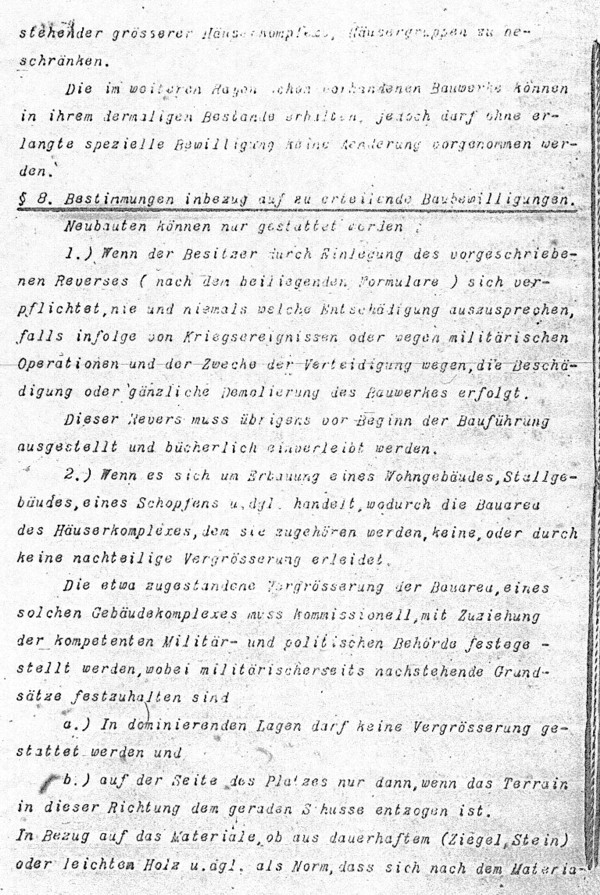 stehender grösserer Häuserkomplexe, Häusergruppen zu be-
schränken.
Die im weiteren Rayon schon vorhandenen Bauwerke können
in ihrem dermaligen Bestande erhalten, jedoch darf ohne er-
langte spezielle Bewilligung keine Aenderung vorgenommen wer-
den.
§ 8. Bestimmungen inbezug auf zu erteilende Baubewilligungen.
Neubauten können nur gestattet werden :
1.) Wenn der Besitzer durch Einlegung des vorgeschriebe-
nen Reverses ( nach dem beiliegenden Formulare ) sich ver-
pflichtet,nie und niemals welche Entschädigung auszusprechen,
falls infolge von Kriegsereignissen oder wegen militärischen
Operationen und der Zwecke der Verteidigung wegen,die Beschä-
digung oder gänzliche Demolierung des Bauwerkes erfolgt.
Dieser Revers muss übrigens vor Beginn der Bauführung
ausgestellt und bücherlich einverleibt werden.
2.) Wenn es sich um Erbauung eines Wohngebäudes,Stallge-
bäudes,eines Schopfens u.dgl. handelt,wodurch die Bauarea
des Häuserkomplexes,dem sie zugehören werden,keine,oder durch
keine nachteilige Vergrösserung erleidet.
Die etwa zugestandene Vergrösserung der Bauarea,eines
solchen Gebäudekomplexes muss kommissionell,mit Zuziehung
der kompetenten Militär- und politischen Behörde festege -
stellt werden,wobei militärischerseits nachstehende Grund-
sätze festzuhalten sind
a.) In dominierenden Lagen darf keine Vergrösserung ge-
stattet werden und
b.) auf der Seite des Platzes nur dann,wenn das Terrain
in dieser Richtung dem geraden Schusse entzogen ist.
In Bezug auf das Materiale,ob aus dauerhaftem (Ziegel,Stein)
oder leichtem Holz u.dgl. als Norm,dass sich nach dem Materia-